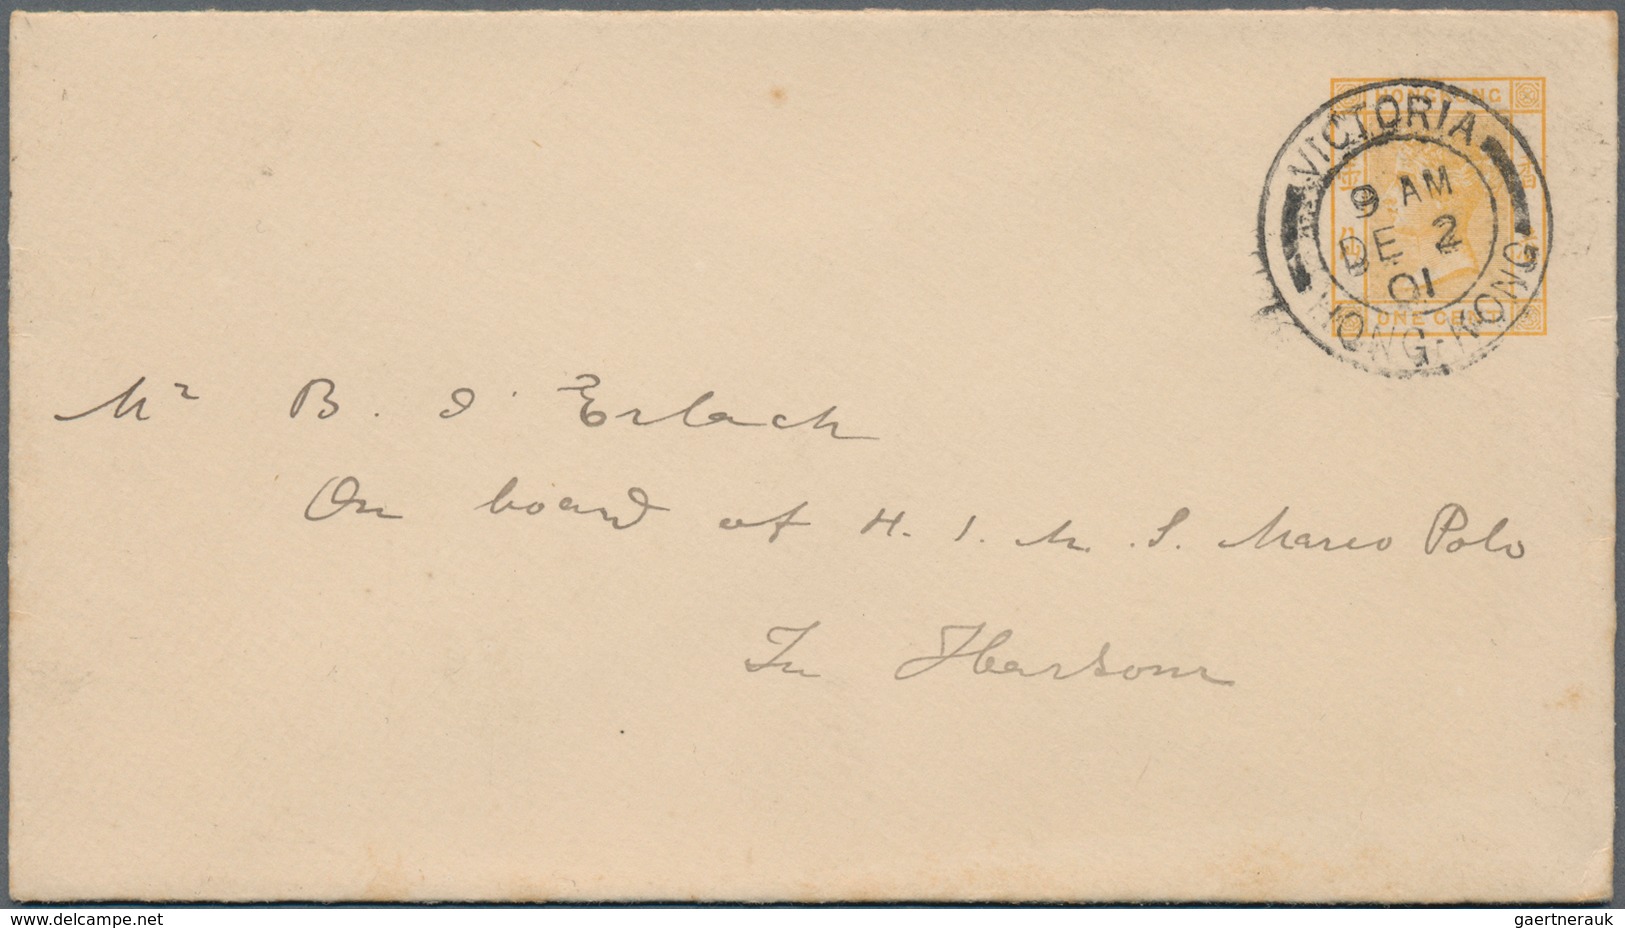 HONGKONG
香
ONE CENT
VICTORIA
9 AM
DE 2
01
HONG-KONG
Mr B. d'Erlach
On board of H. I. M. S. Marco Polo
In Harbour
www.delcampe.net
gaertnerauk